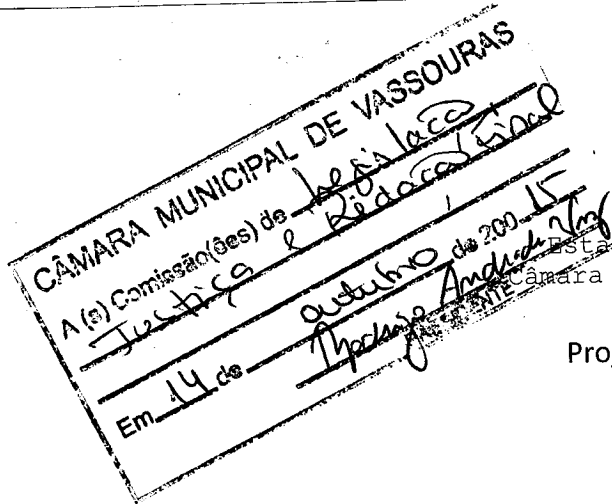 CÂMARA MUNICIPAL DE VASSOURAS
A (s) Comissão(ões) de Legislação
Justiça e Redação Final
Em 14 de outubro de 200 15
Esta
Câmara
Proj